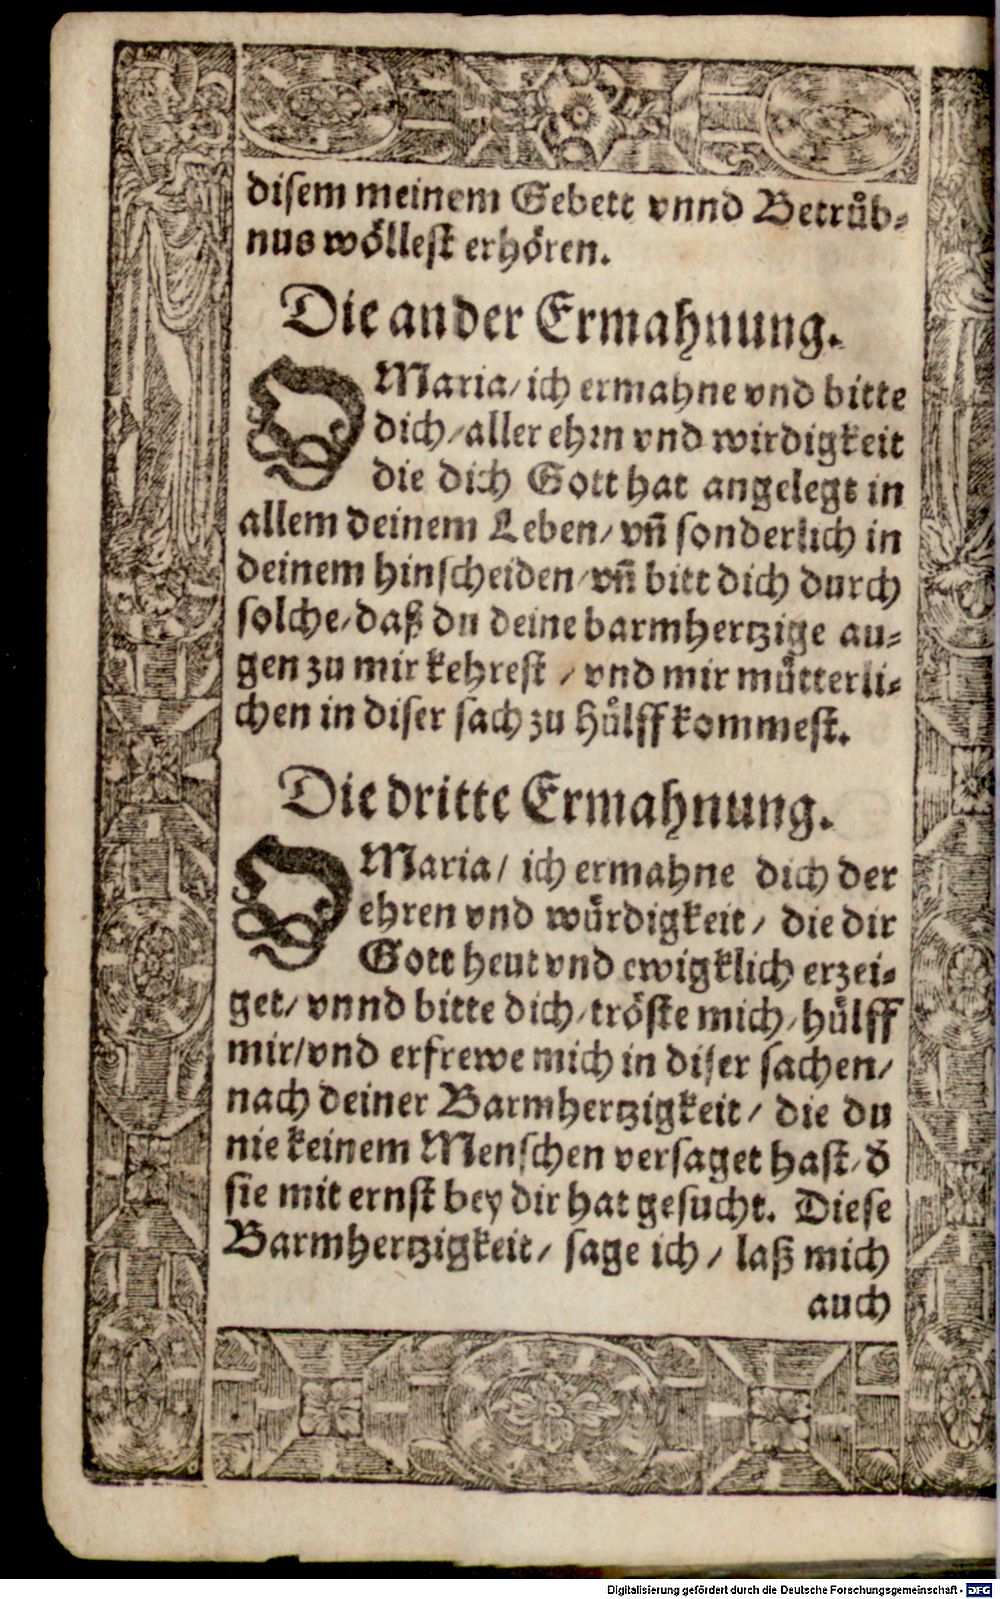 disem meinem Gebett vnnd Betrůb-
nus wöllest erhören.
Die ander Ermahnung.
O Maria/ ich ermahne vnd bitte
dich/ aller ehrn vnd wirdigkeit
die dich Gott hat angelegt in
allem deinem Leben/ vñ sonderlich in
deinem hinscheiden/ vñ bitt dich durch
solche/ daß du deine barmhertzige au-
gen zu mir kehrest / vnd mir můtterli-
chen in diser sach zu hůlff kommest.
Die dritte Ermahnung.
O Maria/ ich ermahne dich der
ehren vnd wůrdigkeit/ die dir
Gott heut vnd ewigklich erzei-
get/ vnnd bitte dich/ tröste mich/ hůlff
mir/ vnd erfrewe mich in diser sachen/
nach deiner Barmhertzigkeit/ die du
nie keinem Menschen versaget hast/ đ
sie mit ernst bey dir hat gesucht. Diese
Barmhertzigkeit/ sage ich / laß mich
auch
Digitalisierung gefördert durch die Deutsche Forschungsgemeinschaft - DFG